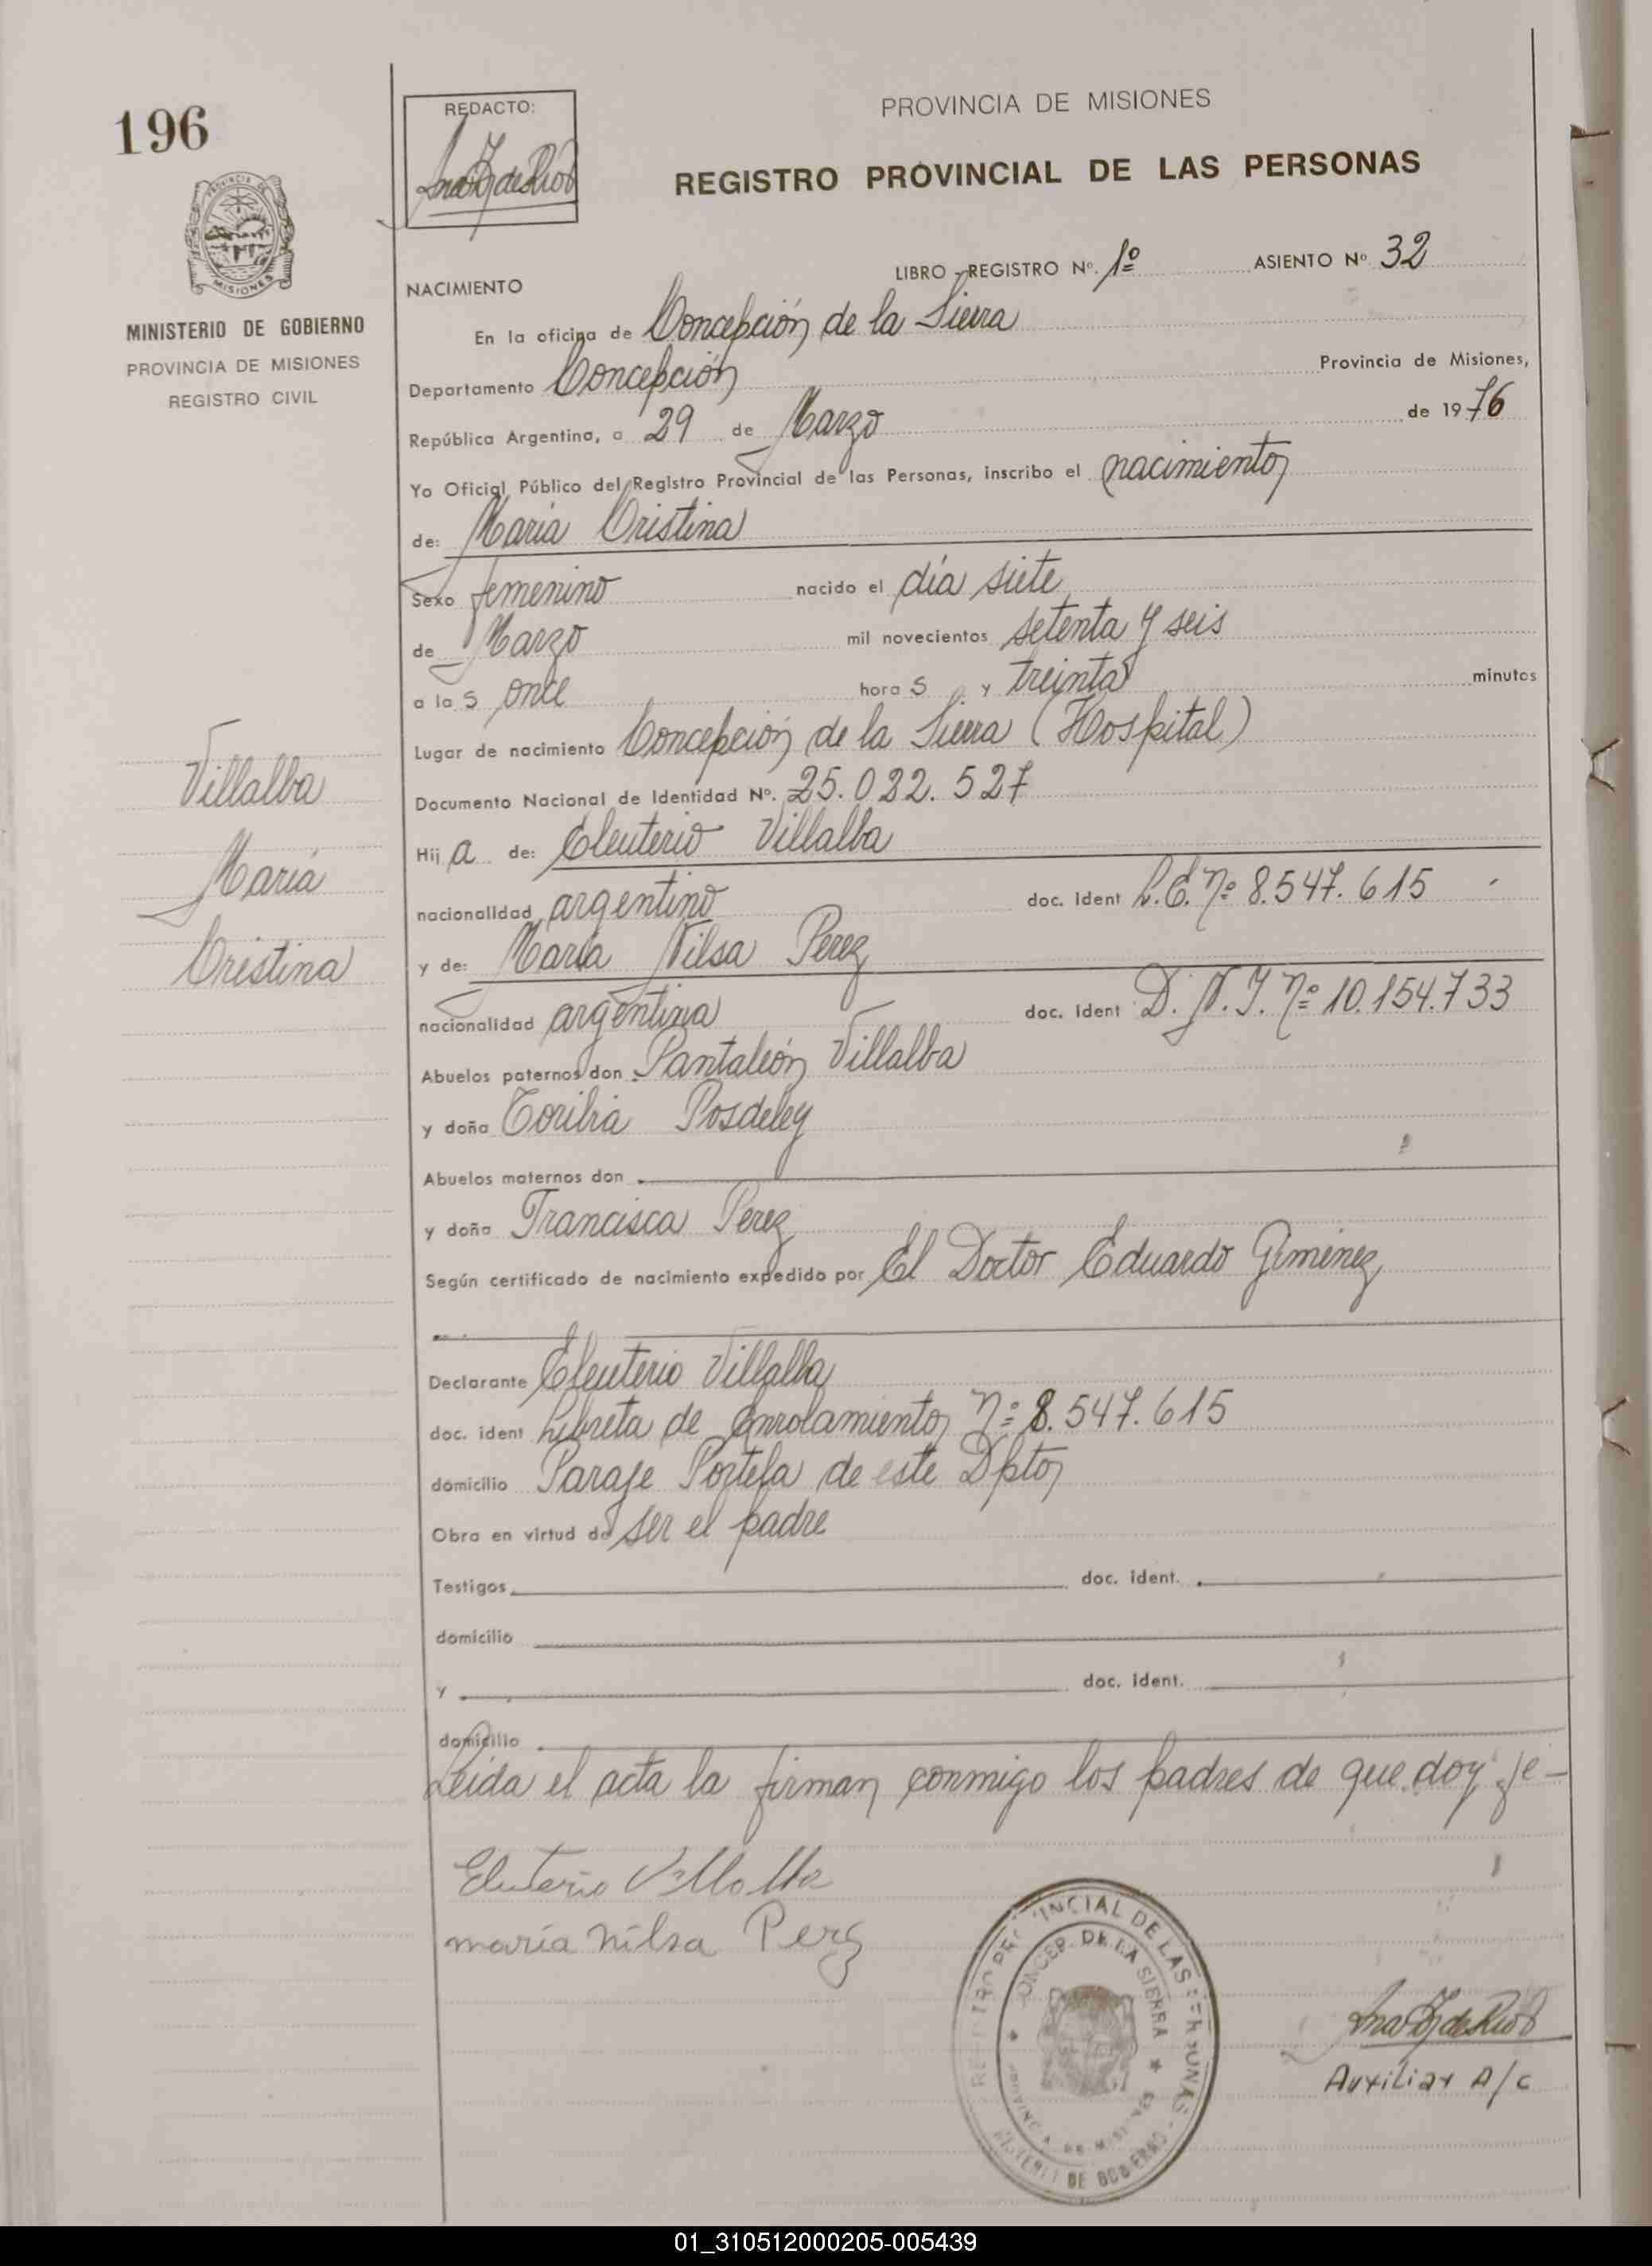 196
REDACTO:
PROVINCIA DE MISIONES
REGISTRO PROVINCIAL DE LAS PERSONAS
PROVINCIA DE
MISIONES
MINISTERIO DE GOBIERNO
PROVINCIA DE MISIONES
REGISTRO CIVIL
LIBRO - REGISTRO Nº. 1º ASIENTO Nº 32
NACIMIENTO
En la oficina de Concepción de la Sierra
Departamento Concepción Provincia de Misiones,
República Argentina, a 29 de Marzo de 1976
Yo Oficial Público del Registro Provincial de las Personas, inscribo el nacimiento
de: María Cristina
Sexo femenino nacido el día siete
de Marzo mil novecientos setenta y seis
a la s once hora s y treinta minutos
Lugar de nacimiento Concepción de la Sierra (Hospital)
Documento Nacional de Identidad Nº. 25.022.527
Hij a de: Eleuterio Villalba
nacionalidad argentino doc. ident L.E. nº 8.547.615
y de: María Nilsa Perez
nacionalidad argentina doc. ident D.N.I. nº 10.154.733
Abuelos paternos don Pantaleón Villalba
y doña Toribia Posdeley
Abuelos maternos don
y doña Francisca Perez
Según certificado de nacimiento expedido por El Doctor Eduardo Giménez
Declarante Eleuterio Villalba
doc. ident Libreta de Enrolamiento nº 8.547.615
domicilio Paraje Portela de este Dpto
Obra en virtud de ser el padre
Testigos doc. ident.
domicilio
y doc. ident.
domicilio
Leída el acta la firman conmigo los padres de que doy fe-
Villalba
María
Cristina
Eluterio Villalba
maria nilsa Perez
REGISTRO PROVINCIAL DE LAS PERSONAS
CONCEP. DE LA SIERRA
PROVINCIA DE MISIONES
MINISTERIO DE GOBIERNO
Auxiliar A/C
01_310512000205-005439